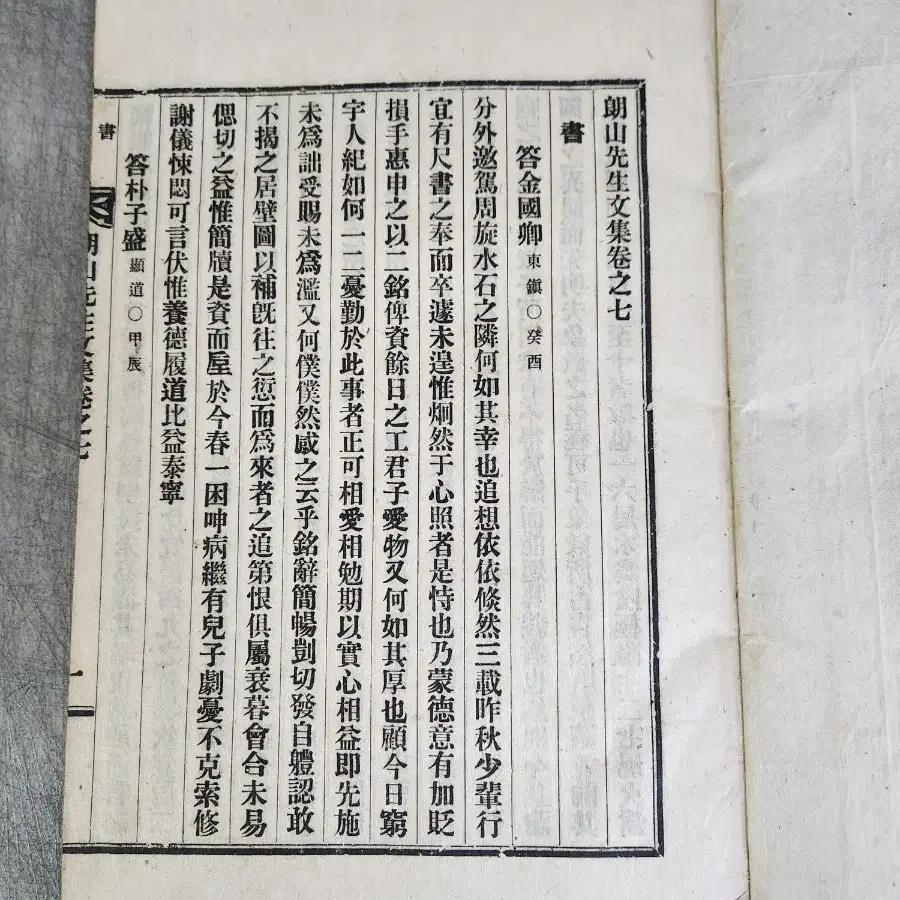 朗山先生文集卷之七
書
答金國卿 東鎭○癸酉
分外邀駕周旋水石之隣何如其幸也追想依依倐然三載昨秋少輩行
宜有尺書之奉而卒遽未遑惟炯然于心照者是恃也乃蒙德意有加貶
損手惠申之以二銘俾資餘日之工君子愛物又何如其厚也顧今日窮
宇人紀如何一二憂勤於此事者正可相愛相勉期以實心相益即先施
未爲詘受賜未爲濫又何僕僕然感之云乎銘辭簡暢剴切發自軆認敢
不揭之居壁圖以補旣往之愆而爲來者之追第恨俱屬衰暮會合未易
偲切之益惟簡牘是資而
於今春一困呻病繼有兒子劇憂不克索修
謝儀悚悶可言伏惟養德履道比益泰寧
答朴子盛 顯道○甲辰
書
朗山先生文集卷之七
一